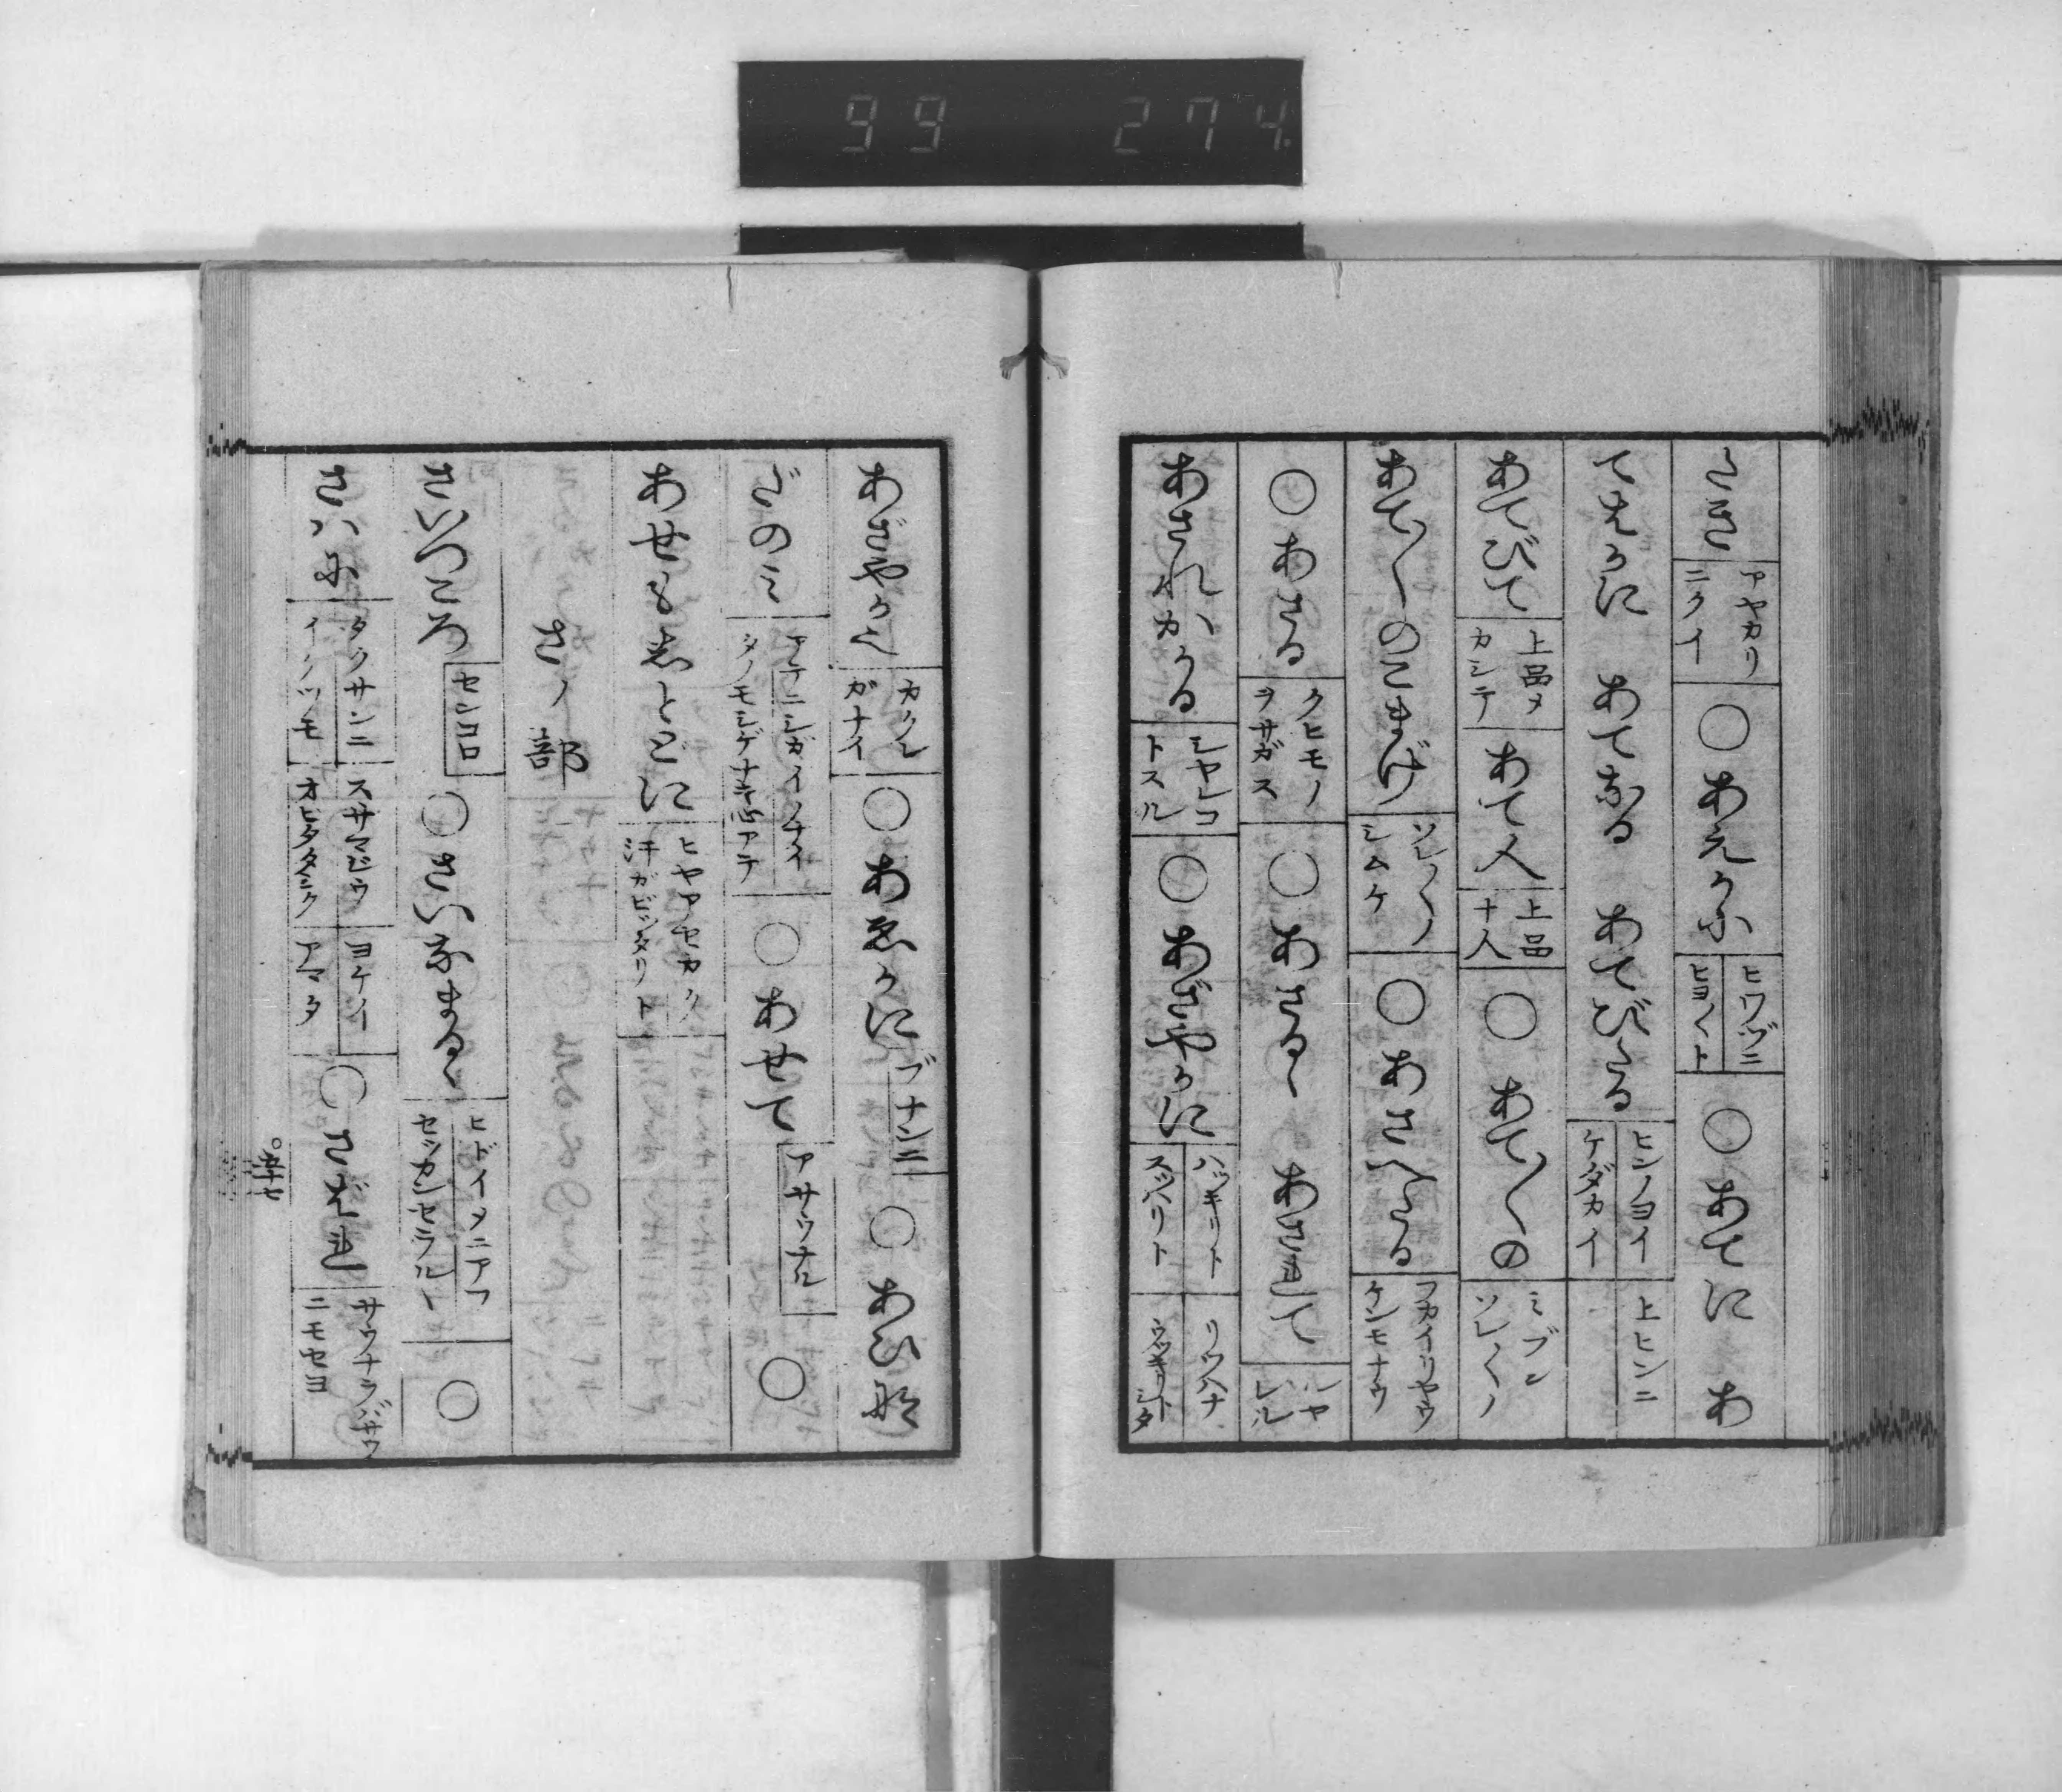 99 274
くき アヤカリニクイ ○あえかに ヒワヅニ ヒヨハト ○あてに あ
てえかに あてなる あてびたる ヒンノヨイ ケダカイ 上ヒンニ
あてびて 上品メカシテ あて人 上品ナ人 ○あて〳〵の ミブン ソレ〳〵ノ
あて〳〵のこまげ ソレ〳〵ノシムケ ○あさへたる フカイリヤウケンモナウ
○あさる クヒモノヲサガス ○あさるゝ あされて
あされかかる ミヤレコトスル ○あざやかに ハッキリト スッパリト リツハナ
あざやかく カクレガナイ ○あゑかに ブナンニ ○あひ
ごのミ アテニシガイノナイ ○あせて アサウナル ○
あせもしとゞに ヒヤアセカク 汗ガビッタリト
さノ部
さいつころ センコロ ○さいなまるゝ ヒドイメニアフ セッカンセラルヽ ○
さはに タクサンニ イクツモ スサマジウ オビタタシク ヨケイ アマタ ○さばれ サウナラバサウニモセヨ
五十七